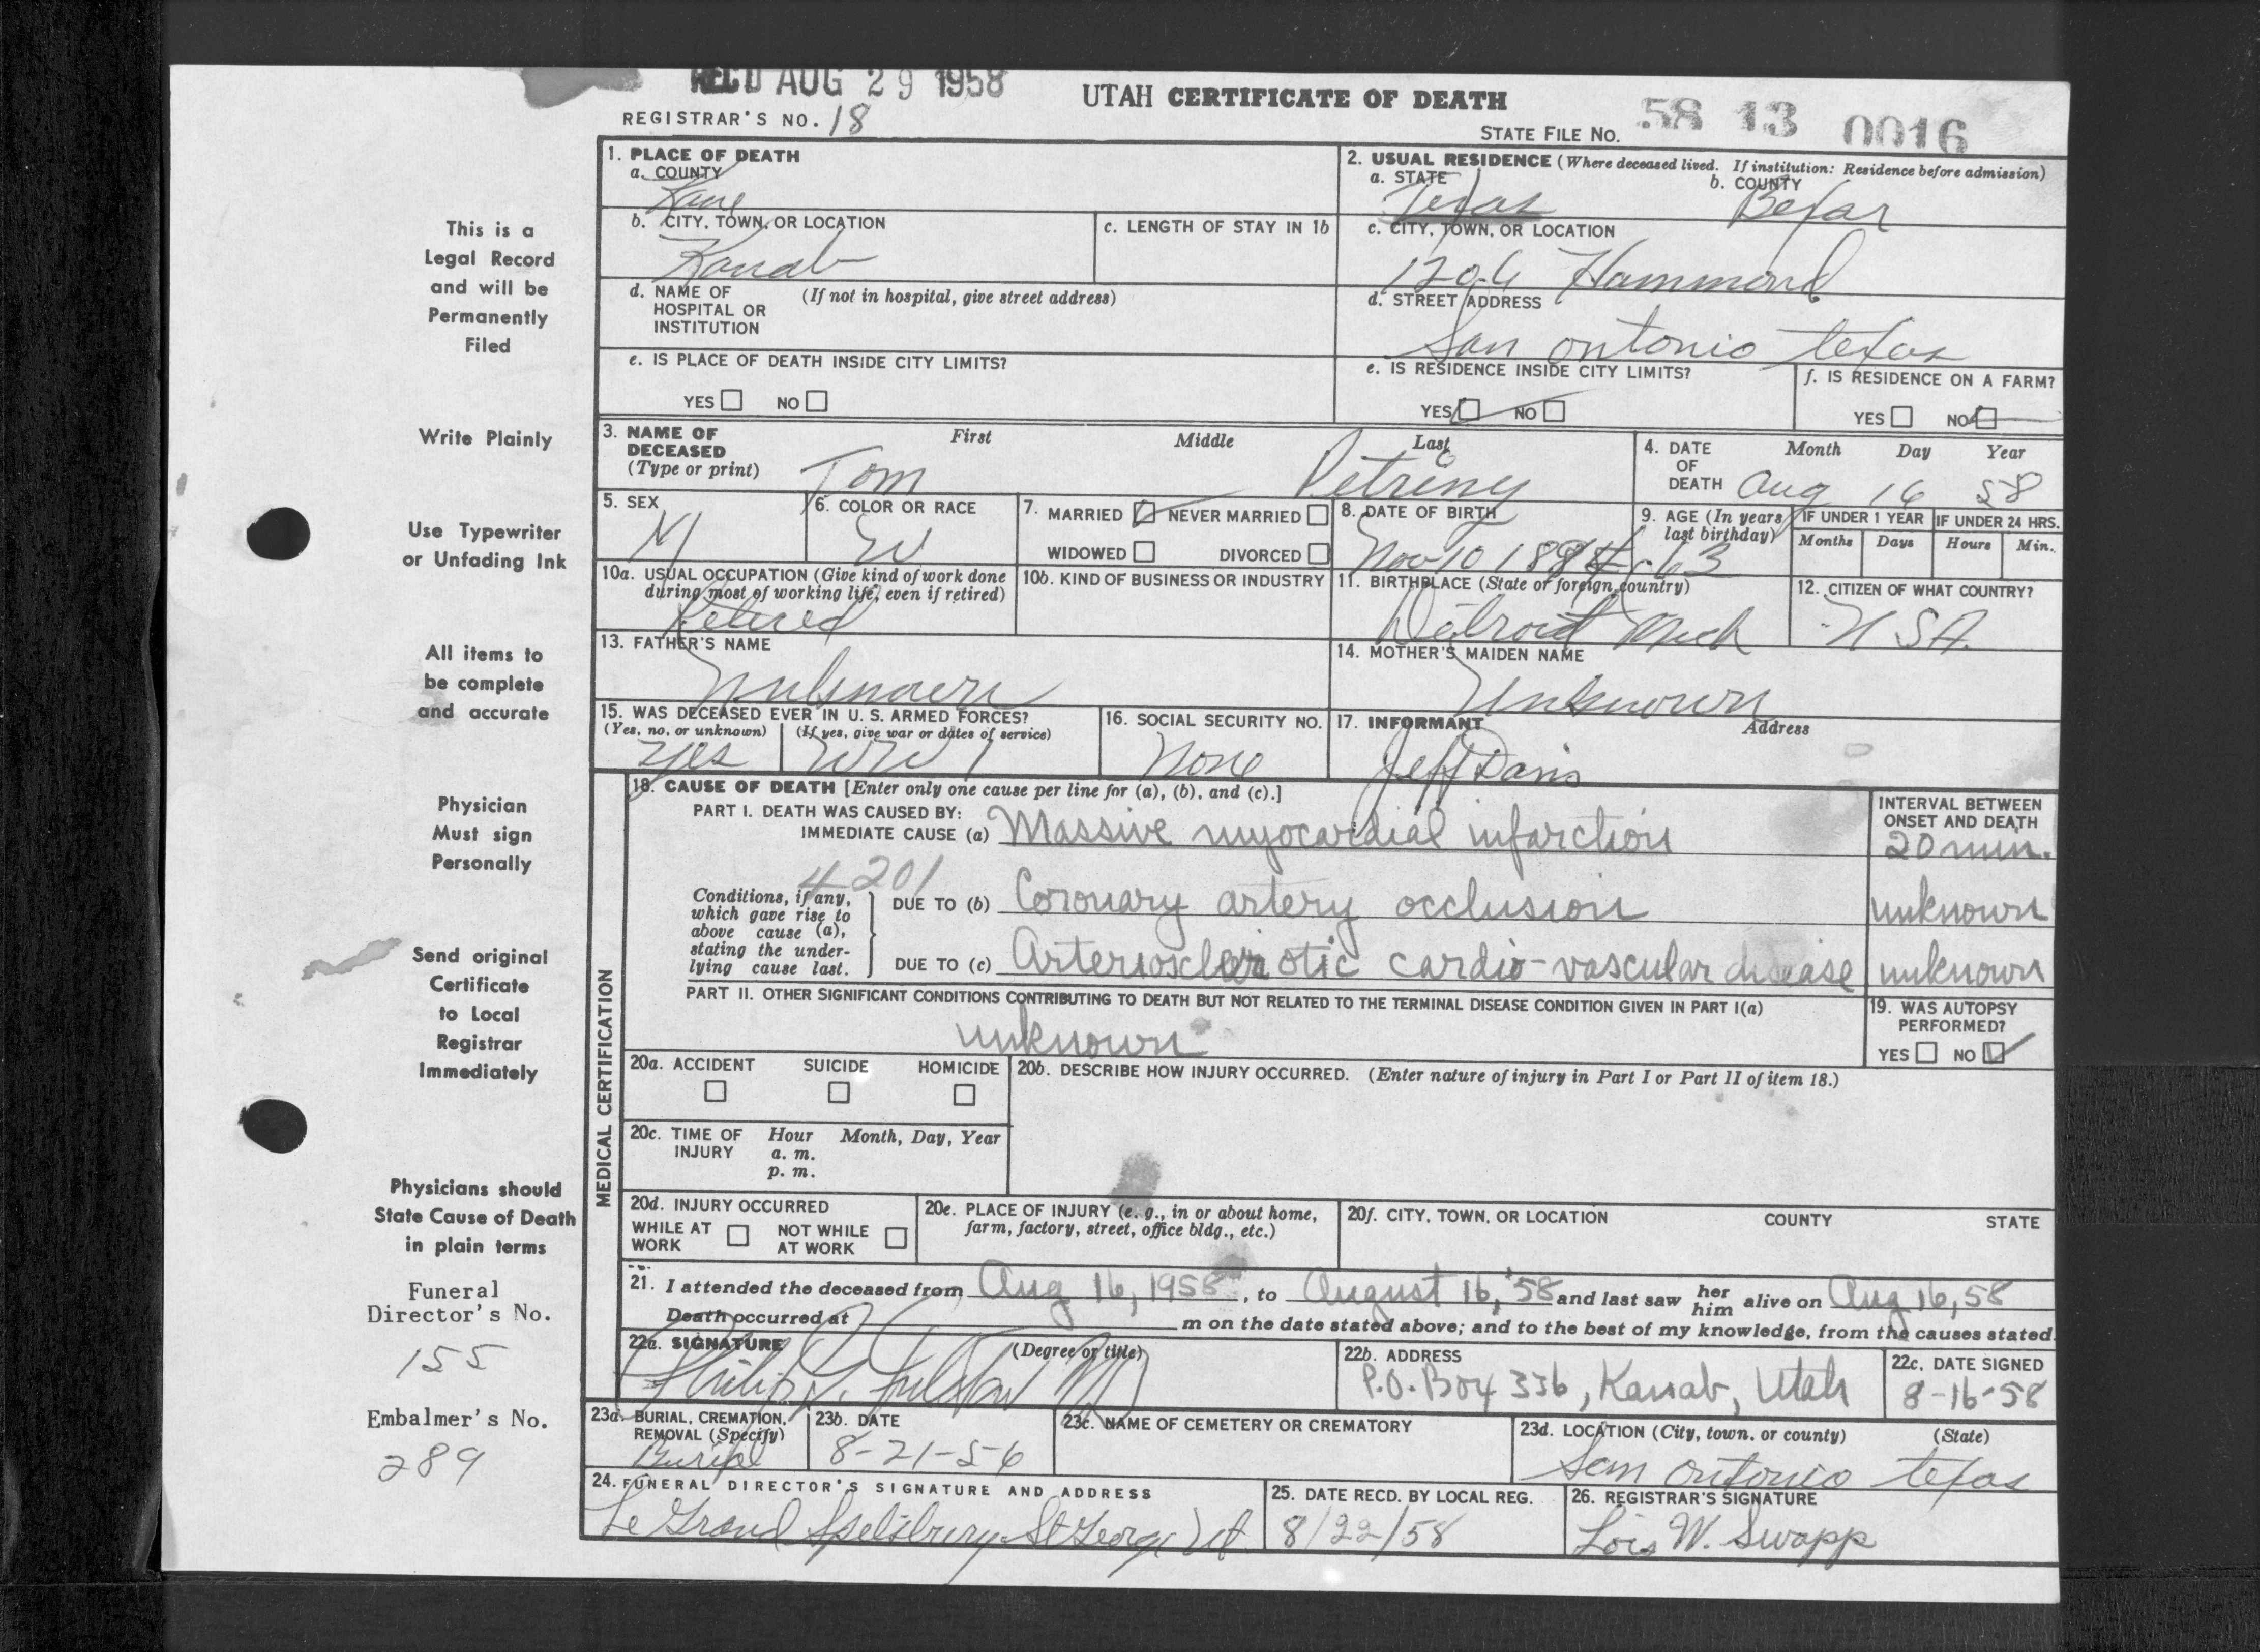 REC'D AUG 29 1958
UTAH CERTIFICATE OF DEATH
REGISTRAR'S NO. 18
STATE FILE NO. 58 13 0016
This is a
Legal Record
and will be
Permanently
Filed
Write Plainly
Use Typewriter
or Unfading Ink
All items to
be complete
and accurate
Physician
Must sign
Personally
Send original
Certificate
to Local
Registrar
Immediately
Physicians should
State Cause of Death
in plain terms
Funeral
Director's No.
155
Embalmer's No.
289
1. PLACE OF DEATH
a. COUNTY
Kane
2. USUAL RESIDENCE (Where deceased lived. If institution: Residence before admission)
a. STATE b. COUNTY
Texas Bexar
b. CITY, TOWN, OR LOCATION
Kanab
c. LENGTH OF STAY IN 1b
c. CITY, TOWN, OR LOCATION
Hammond
d. NAME OF (If not in hospital, give street address)
HOSPITAL OR
INSTITUTION
d. STREET ADDRESS
San Antonio Texas
e. IS PLACE OF DEATH INSIDE CITY LIMITS?
YES NO
e. IS RESIDENCE INSIDE CITY LIMITS?
YES NO
f. IS RESIDENCE ON A FARM?
YES NO
3. NAME OF
DECEASED
(Type or print)
First Middle Last
Tom Petriny
4. DATE
OF
DEATH
Month Day Year
Aug 16 58
5. SEX
M
6. COLOR OR RACE
W
7. MARRIED NEVER MARRIED
WIDOWED DIVORCED
8. DATE OF BIRTH
Nov 10
9. AGE (In years
last birthday)
63
IF UNDER 1 YEAR IF UNDER 24 HRS.
Months Days Hours Min.
10a. USUAL OCCUPATION (Give kind of work done
during most of working life, even if retired)
Retired
10b. KIND OF BUSINESS OR INDUSTRY
11. BIRTHPLACE (State or foreign country)
Detroit Mich
12. CITIZEN OF WHAT COUNTRY?
USA.
13. FATHER'S NAME
Unknown
14. MOTHER'S MAIDEN NAME
Unknown
15. WAS DECEASED EVER IN U. S. ARMED FORCES?
(Yes, no, or unknown) (If yes, give war or dates of service)
Yes WW 1
16. SOCIAL SECURITY NO.
None
17. INFORMANT Address
Jeff Davis
MEDICAL CERTIFICATION
18. CAUSE OF DEATH [Enter only one cause per line for (a), (b), and (c).]
PART I. DEATH WAS CAUSED BY:
IMMEDIATE CAUSE (a) Massive myocardial infarction
INTERVAL BETWEEN
ONSET AND DEATH
20 min.
4201
Conditions, if any,
which gave rise to
above cause (a),
stating the under-
lying cause last.
DUE TO (b) Coronary artery occlusion unknown
DUE TO (c) Arteriosclerotic cardio-vascular disease unknown
PART II. OTHER SIGNIFICANT CONDITIONS CONTRIBUTING TO DEATH BUT NOT RELATED TO THE TERMINAL DISEASE CONDITION GIVEN IN PART I(a)
unknown
19. WAS AUTOPSY
PERFORMED?
YES NO
20a. ACCIDENT SUICIDE HOMICIDE
20b. DESCRIBE HOW INJURY OCCURRED. (Enter nature of injury in Part I or Part II of item 18.)
20c. TIME OF Hour Month, Day, Year
INJURY a. m.
p. m.
20d. INJURY OCCURRED
WHILE AT NOT WHILE
WORK AT WORK
20e. PLACE OF INJURY (e. g., in or about home,
farm, factory, street, office bldg., etc.)
20f. CITY, TOWN, OR LOCATION COUNTY STATE
21. I attended the deceased from Aug 16, 1958, to August 16, '58 and last saw her him alive on Aug 16, 58
Death occurred at m on the date stated above; and to the best of my knowledge, from the causes stated.
22a. SIGNATURE (Degree or title)
Philip MD
22b. ADDRESS
P.O. Box 336, Kanab, Utah
22c. DATE SIGNED
8-16-58
23a. BURIAL, CREMATION,
REMOVAL (Specify)
Burial
23b. DATE
8-21-56
23c. NAME OF CEMETERY OR CREMATORY
23d. LOCATION (City, town, or county) (State)
San Antonio Texas
24. FUNERAL DIRECTOR'S SIGNATURE AND ADDRESS
Le Grand Spilsbury St George Ut
25. DATE RECD. BY LOCAL REG.
8/22/58
26. REGISTRAR'S SIGNATURE
Lois W. Swapp